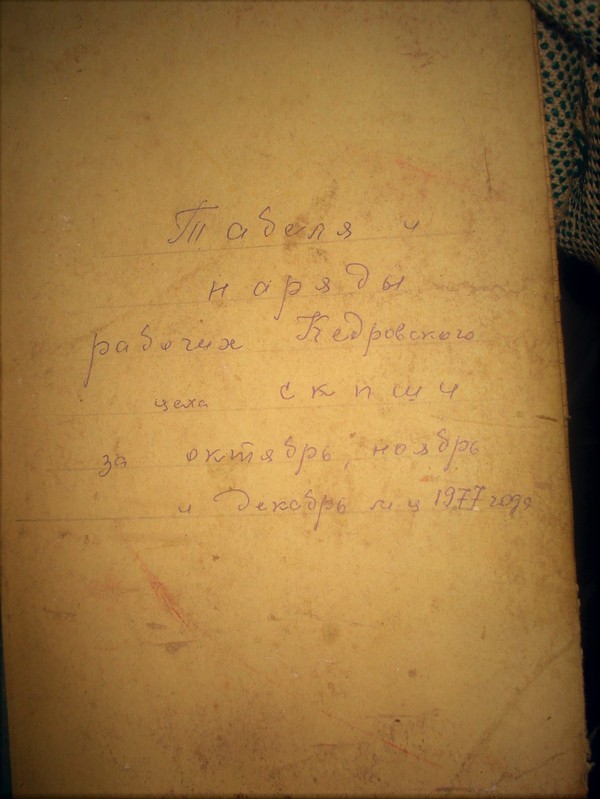 Табеля и
наряды
рабочих Кедровского
цеха скпши
за октябрь, ноябрь
и декабрь м ц 1977 года